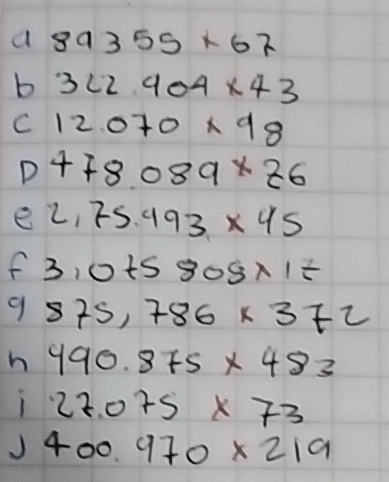 a 89355 x 67
b 322.404 x 43
c 12.070 x 98
D 478.089 x 26
e 2,75.493 x 45
f 3,075 808 x 17
g 875,786 x 372
h 490.875 x 483
i 27.075 x 73
J 400.970 x 219